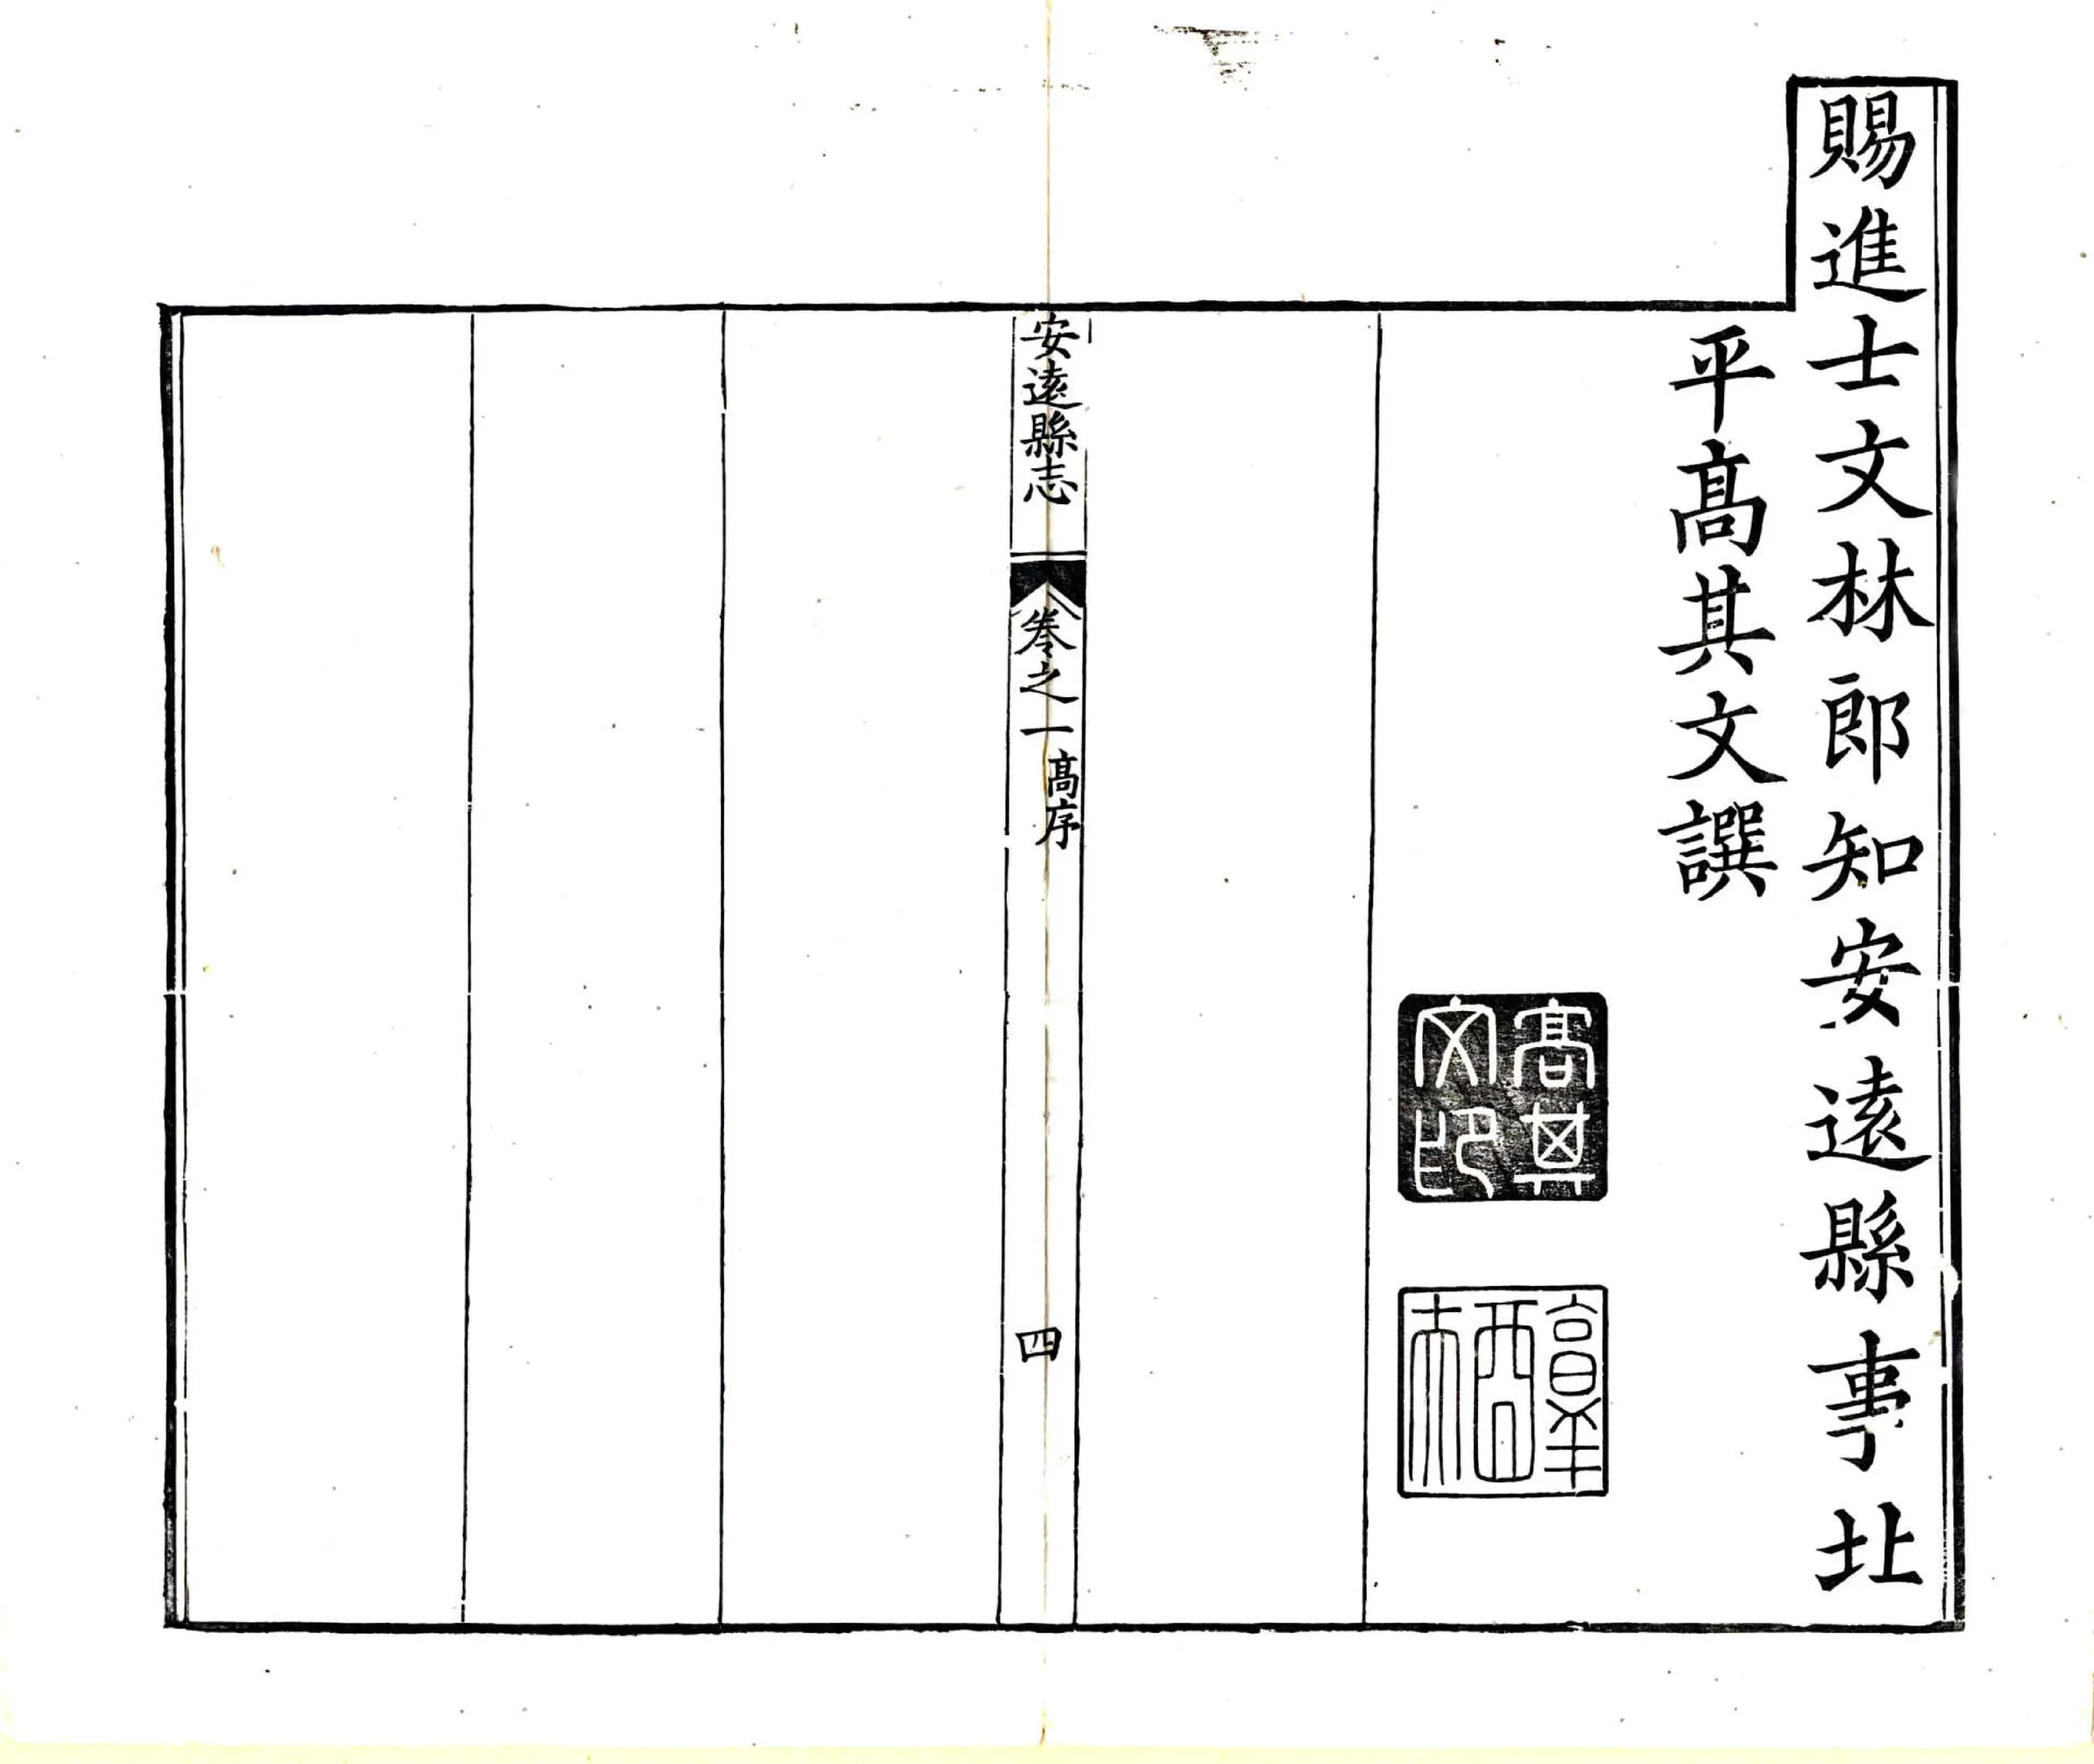 賜進士文林郎知安遠縣事北
平高其文撰
高其
文印
安遠縣志
卷之一
高序
四